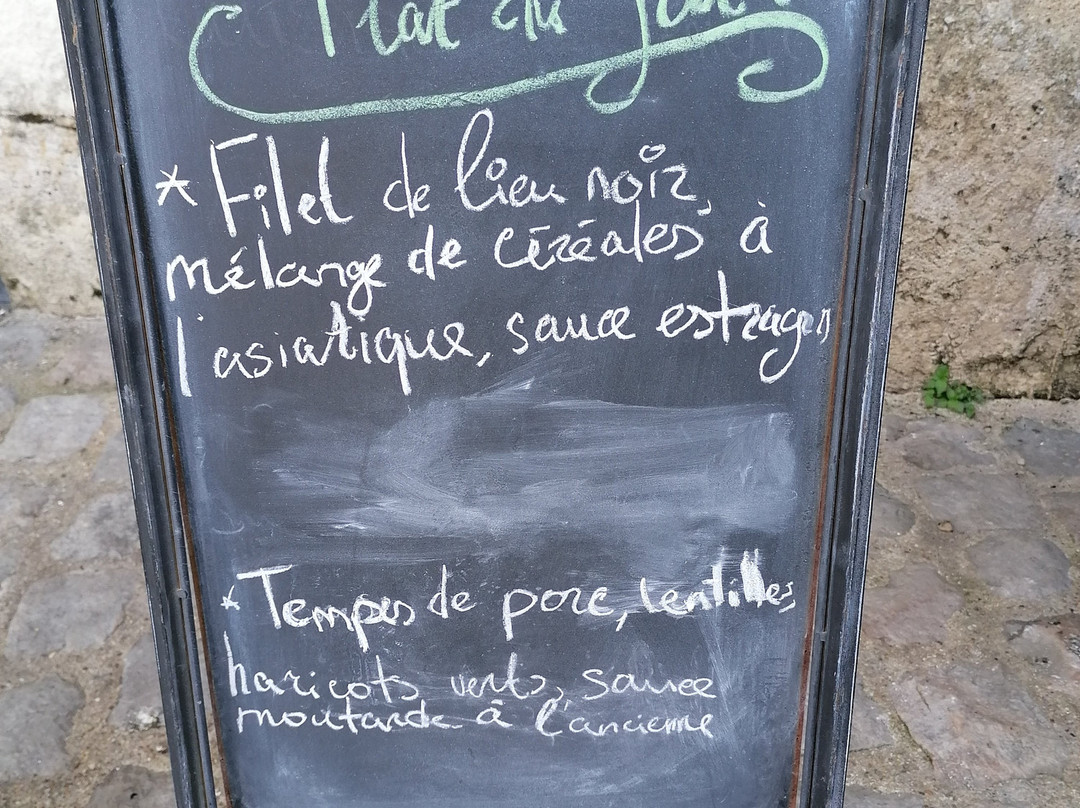 Plat du Jour
* Filet de lieu noir,
mélange de céréales à
l'asiatique, sauce estragon
* Tempes de porc, lentilles,
haricots verts, sauce
moutarde à l'ancienne